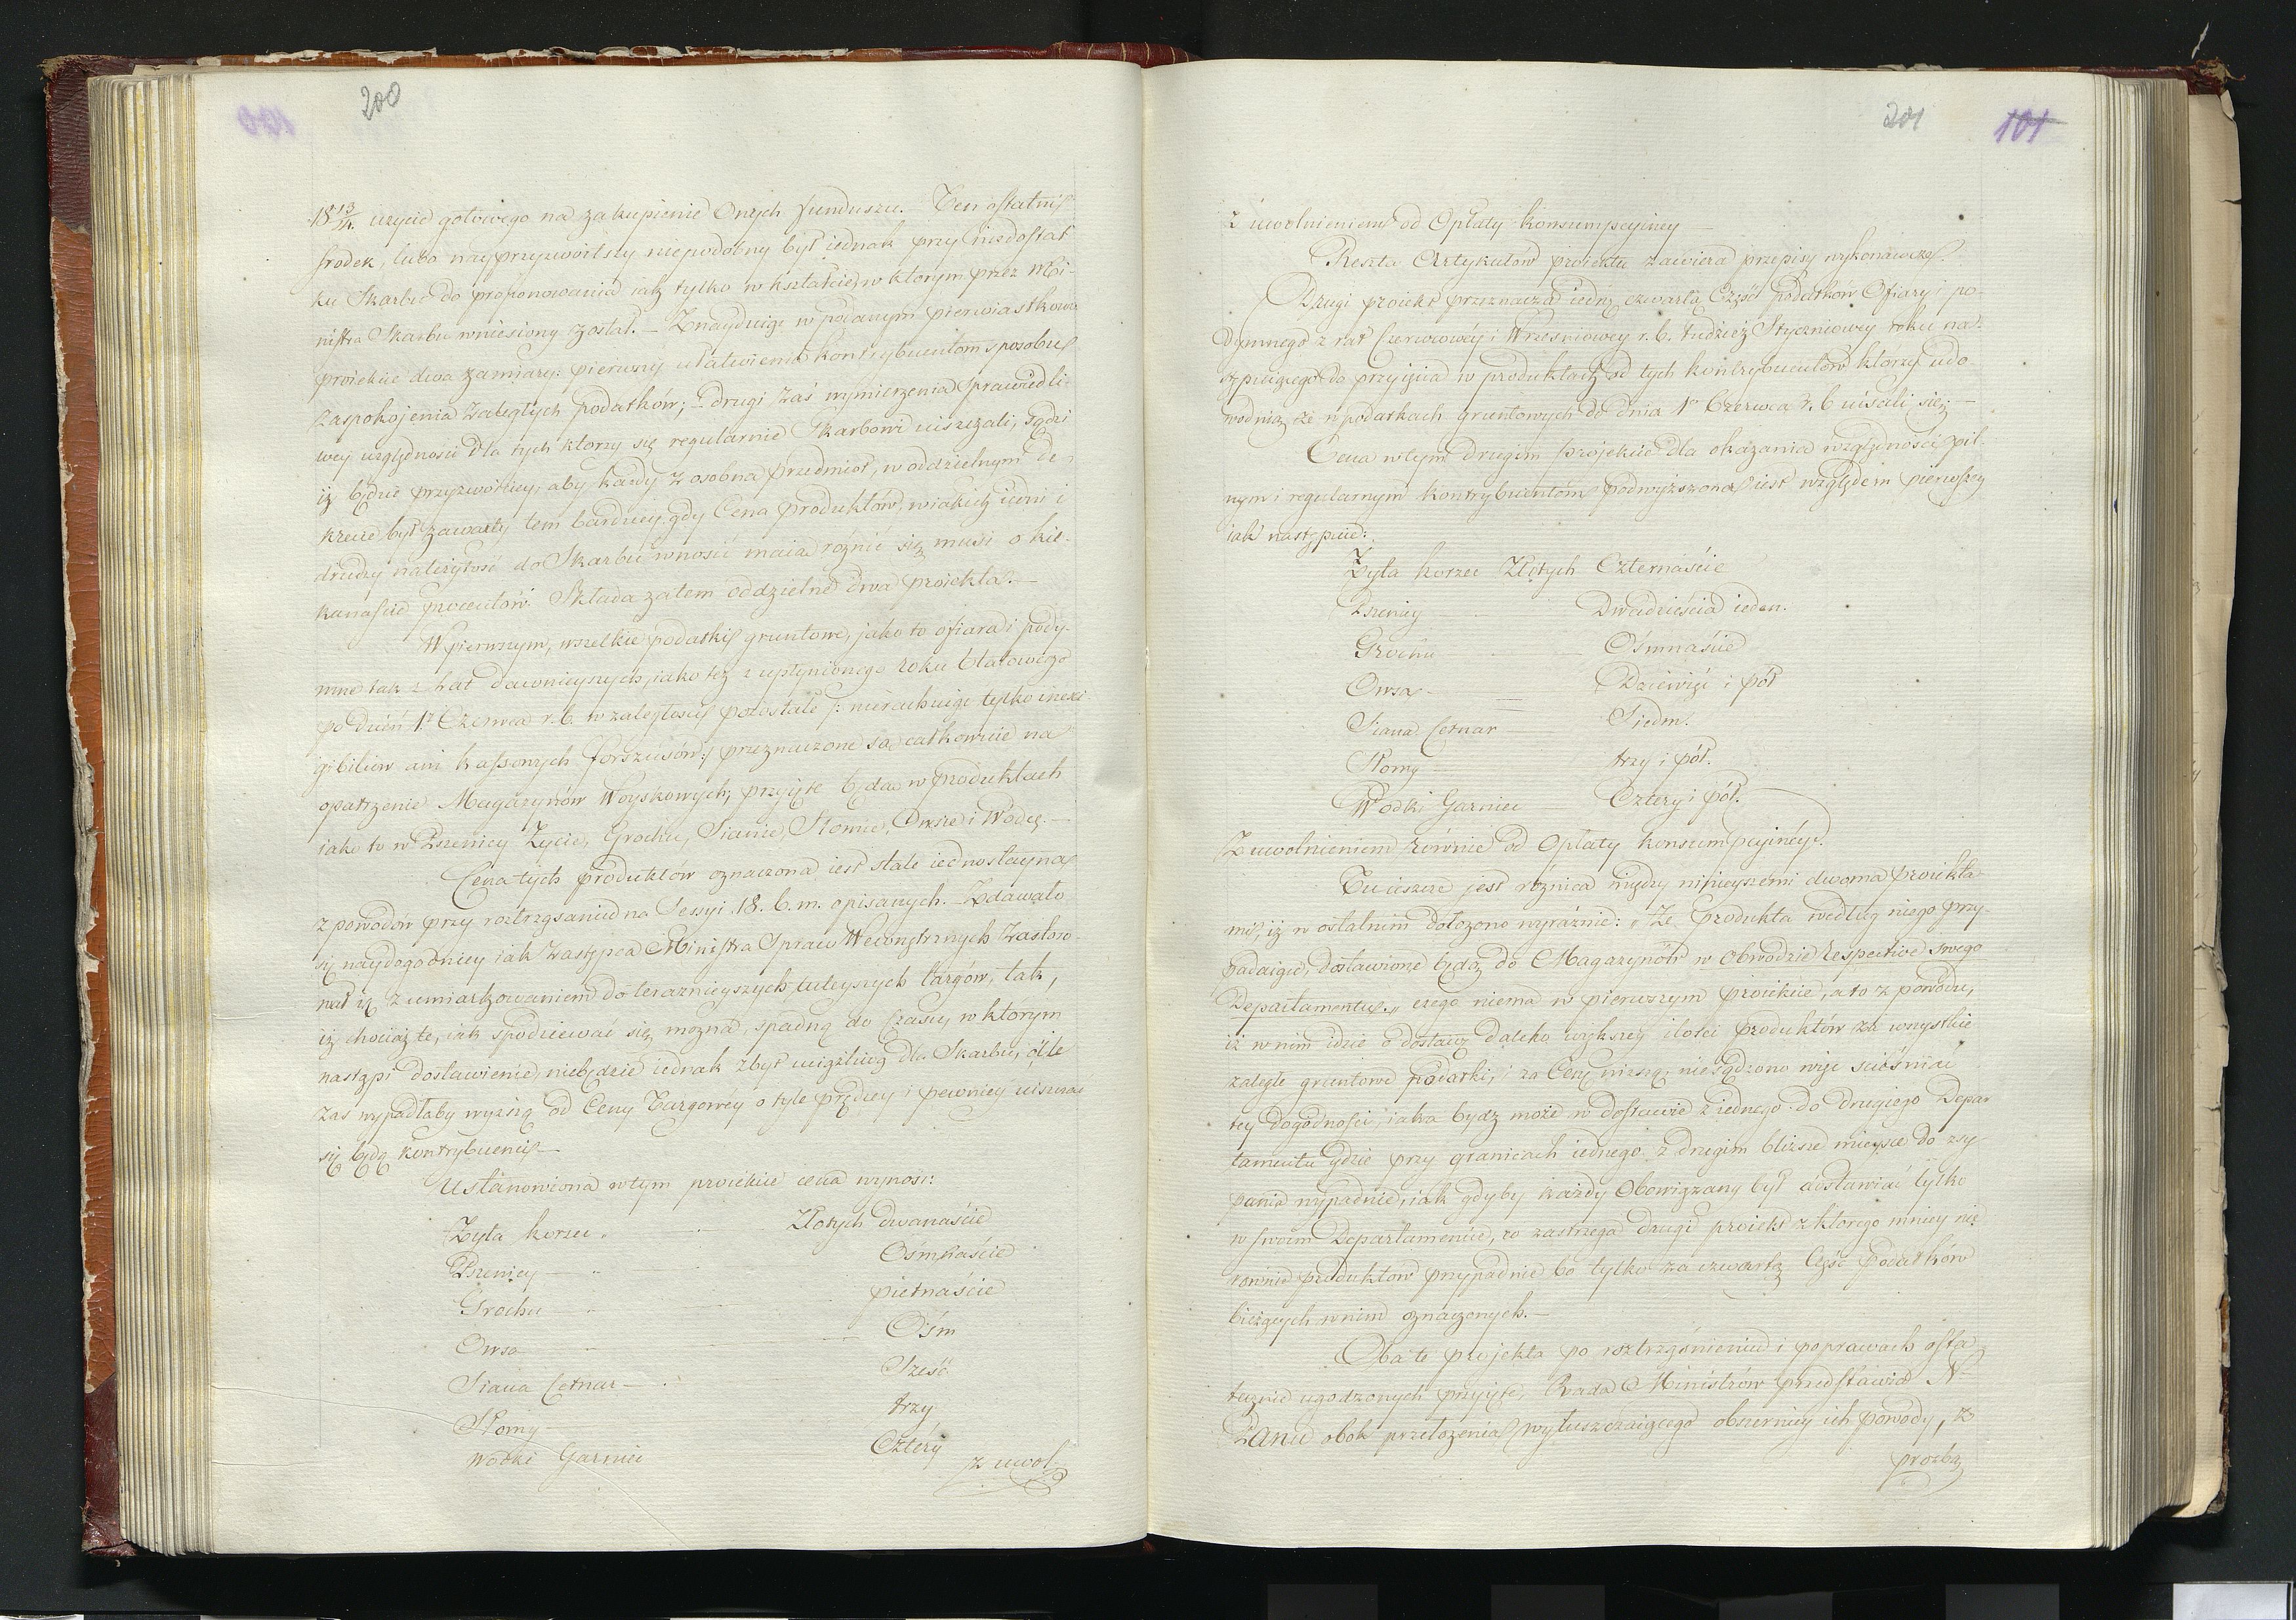 200
18 13/14. użycie gotowego na zakupienie Onych funduszu. Ten ostatni
srodek, lubo nayprzyzwoitszy niepodobny był iednak przy niedostat
ku Skarbu do proponowania iak tylko w kształcie, w ktorym przez Mi-
nistra Skarbu wniesiony został. — Znayduiąc w podanym pierwiastkowo
proiekcie dwa zamiary: pierwszy ułatwienia kontrybuentom sposobu
zaspokojenia zaległych podatków; — drugi zaś wymierzenia sprawiedli-
wey względności dla tych ktorzy się regularnie Skarbowi uiszczali, sądzi
iż będzie przyzwoiciey, aby każdy z osobna przedmiot, w oddzielnym De-
krecie był zawarty tem bardziey, gdy Cena produktów, w iakich iedni i
drudzy należytość do Skarbu wnosić maia roznić się musi o kil-
kanaście procentów. Składa zatem oddzielne dwa proiekta. —
W pierwszym, wszelkie podatki gruntowe, jako to ofiara i pody-
mne tak z lat dawnieyszych, iako też z upłynionego roku 6latowego
po Dzień 1. Czerwca r. b. w zaległości pozostałe /: nierachuiąc tylko inexi-
gibiliow ani kassowych forszusów :/ przeznaczone są całkowicie na
opatrzenie Magazynów Woyskowych; przyięte będą w produktach
iako to w Pszenicy Życie, Grochu, Sianie, Słomie, Owsie i Wodce. —
Cena tych produktów oznaczona iest stale iednostayna
z powodów przy roztrząsaniu na Sessyi 18. b. m. opisanych. — Zdawało
się naydogodniey iak Zastępca Ministra Spraw Wewnętrznych Zastoso-
wał ią z umiarkowaniem do teraznieyszych tuteyszych targów, tak,
iż chociaż te, iak spodziewać się można, spadną do Czasu, w ktorym
nastąpi dostawienie, niebędzie iednak zbyt uciążliwą dla Skarbu, óile
zas wypadłaby wyższą od Ceny Targowey o tyle prędzey i pewniey uiszczać
się będą kontrybuenci —
Ustanowiona w tym proiekcie cena wynosi:
Żyta korzec Złotych dwanaście
Pszenicy — Ośmnaście
Grochu — piętnaście
Owsa — Ośm
Siana Cetnar — Sześć
Słomy — trzy
Wodki Garniec Cztéry
z uwol-
201 101
z uwolnieniem od Opłaty konsumpcyiney
Reszta Artykułów proiektu zawiera przepisy wykonawcze.
Drugi proiekt przeznacza iedną czwartą Część Podatków Ofiary i po-
dymnego z rat Czerwcowéy i Wrześniowey r. b. tudzież Styczniowey roku na-
stępuiącego do przyięcia w produktach od tych kontrybuentów którzy udo-
wodnią, że w podatkach gruntowych do dnia 1o Czerwca r. b uiścili się; —
Cena w tym drugim projekcie dla okazania względności pil-
nym i regularnym kontrybuentom podwyższona iest względem pierwszey
iak następuie:
Żyta korzec Złotych Czternaście
Pszenicy Dwadzieścia ieden.
Grochu — Ośmnaście
Owsa — Dziewięć i pół
Siana Cetnar — Siedm.
Słomy — trzy i pół.
Wodki Garniec — Cztery i pół.
Z uwolnieniem równie od Opłaty konsumpcyinéy.
Tu ieszcze jest różnica między ninieyszemi dwoma proiekta-
mi, iż w ostatnim dołożono wyraźnie: „Że Produkta według niego przy-
padaiące, dostawione będą do Magazynów w Obwodzie respective swego
Departamentu„ czego niema w pierwszym proiekcie, a to z powodu,
iż w nim idzie o dostawę daleko większey ilości produktów za wszystkie
zaległe gruntowe podatki, i za Cenę niższą; niesądzono więc ścieśniać
tey dogodności, iaka bydz może w dostawie z iednego do drugiego Depar
tamentu gdzie przy granicach iednego z drugim bliższe mieysce do zsy-
pania wypadnie, iak gdyby każdy Obowiązany był dostawiać tylko
w swoim Departamencie, co zastrzega drugi proiekt z którego mniey nie
równie produktów przypadnie bo tylko za czwartą Część podatków
bieżących w nim oznaczonych. —
Oba te projekta po roztrząśnieniu i poprawach osta-
tecznie ugodzonych przyięte, Rada Ministrów przedstawia N-
Panu obok przełożenia wyłuszczaiącego obszerniey ich powody, z
prozbą